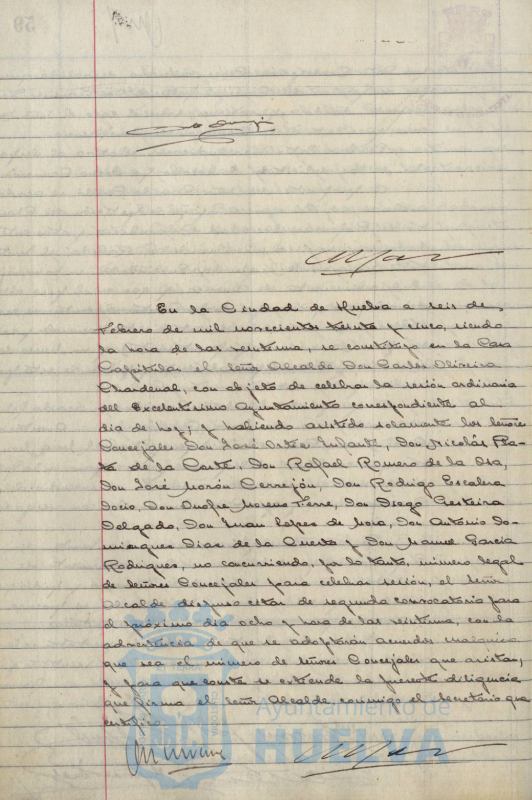 En la Ciudad de Huelva a seis de
Febrero de mil novecientos treinta y cinco, siendo
la hora de las veintiuna, se constituyó en la Casa
Capitular el Señor Alcalde Don Carlos Oliveira
Chardenal, con objeto de celebrar la sesión ordinaria
del Excelentísimo Ayuntamiento correspondiente al
día de hoy; y habiendo asistido solamente los señores
Concejales Don José Ortiz Infante, Don Nicolás
de la Corte, Don Rafael Romero de la Osa,
Don José Morón Cerrejón, Don Rodrigo Escalera
Don Onofre Moreno Don Diego
Delgado, Don Juan López de Mora, Don Antonio Do-
minguez Diaz de la y Don Manuel García
Rodriguez, no concurriendo, por lo tanto, número legal
de señores Concejales para celebrar sesión, el Señor
Alcalde dispuso citar de segunda convocatoria para
el próximo día ocho y hora de las veintiuna, con la
advertencia de que se adoptarán acuerdos cualquiera
que sea el número de señores Concejales que asistan,
y para que conste se extiende la presente diligencia
que firma el Señor Alcalde, conmigo el Secretario que
certifico.
Ayuntamiento de
HUELVA